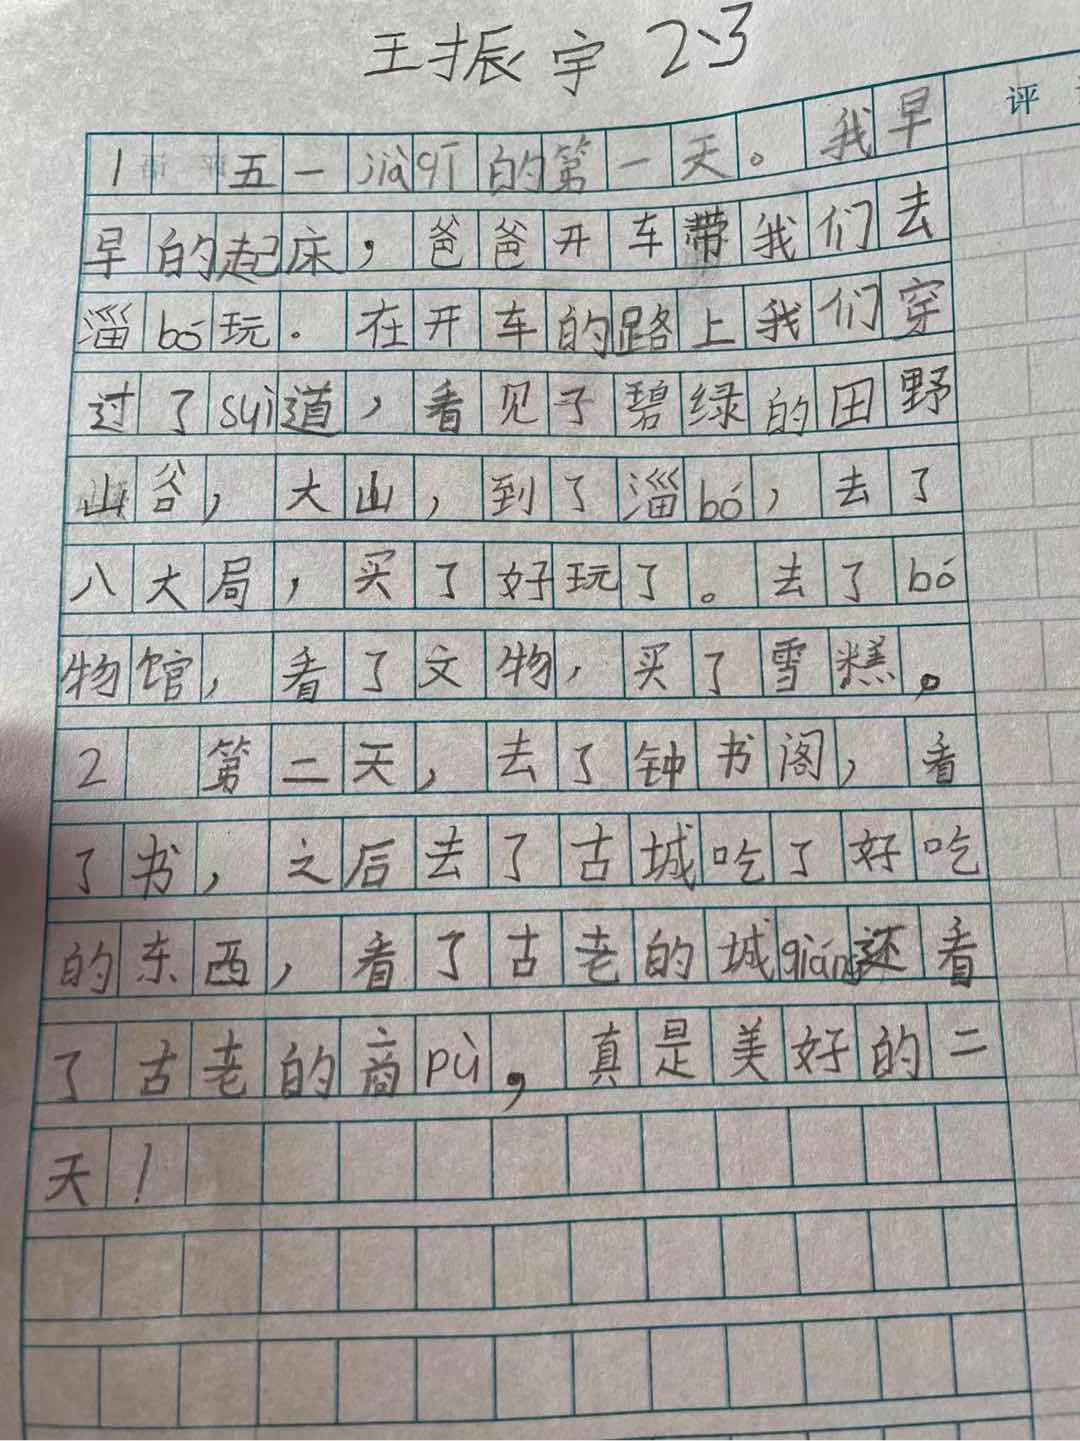 王振宇 2、3
评
1 五一jiàqī的第一天。我早
早的起床，爸爸开车带我们去
淄bó玩．在开车的路上我们穿
过了suì道，看见了碧绿的田野
山谷，大山，到了淄bó，去了
八大局，买了好玩了。去了bó
物馆，看了文物，买了雪糕。
2 第二天，去了钟书阁，看
了书，之后去了古城吃了好吃
的东西，看了古老的城qiáng还看
了古老的商pù，真是美好的二
天！